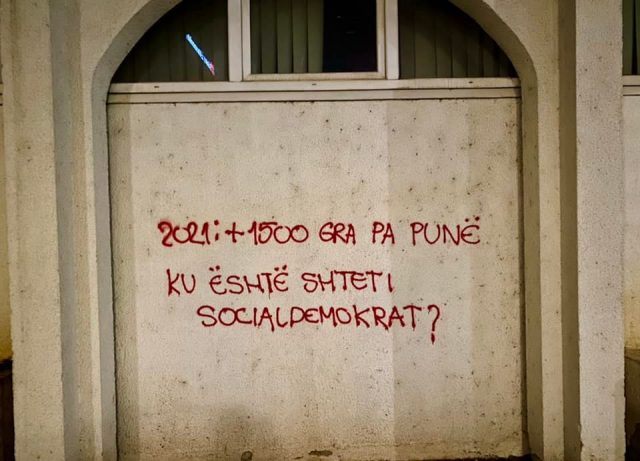 2021: +1500 GRA PA PUNË
KU ËSHTË SHTETI
SOCIALDEMOKRAT?